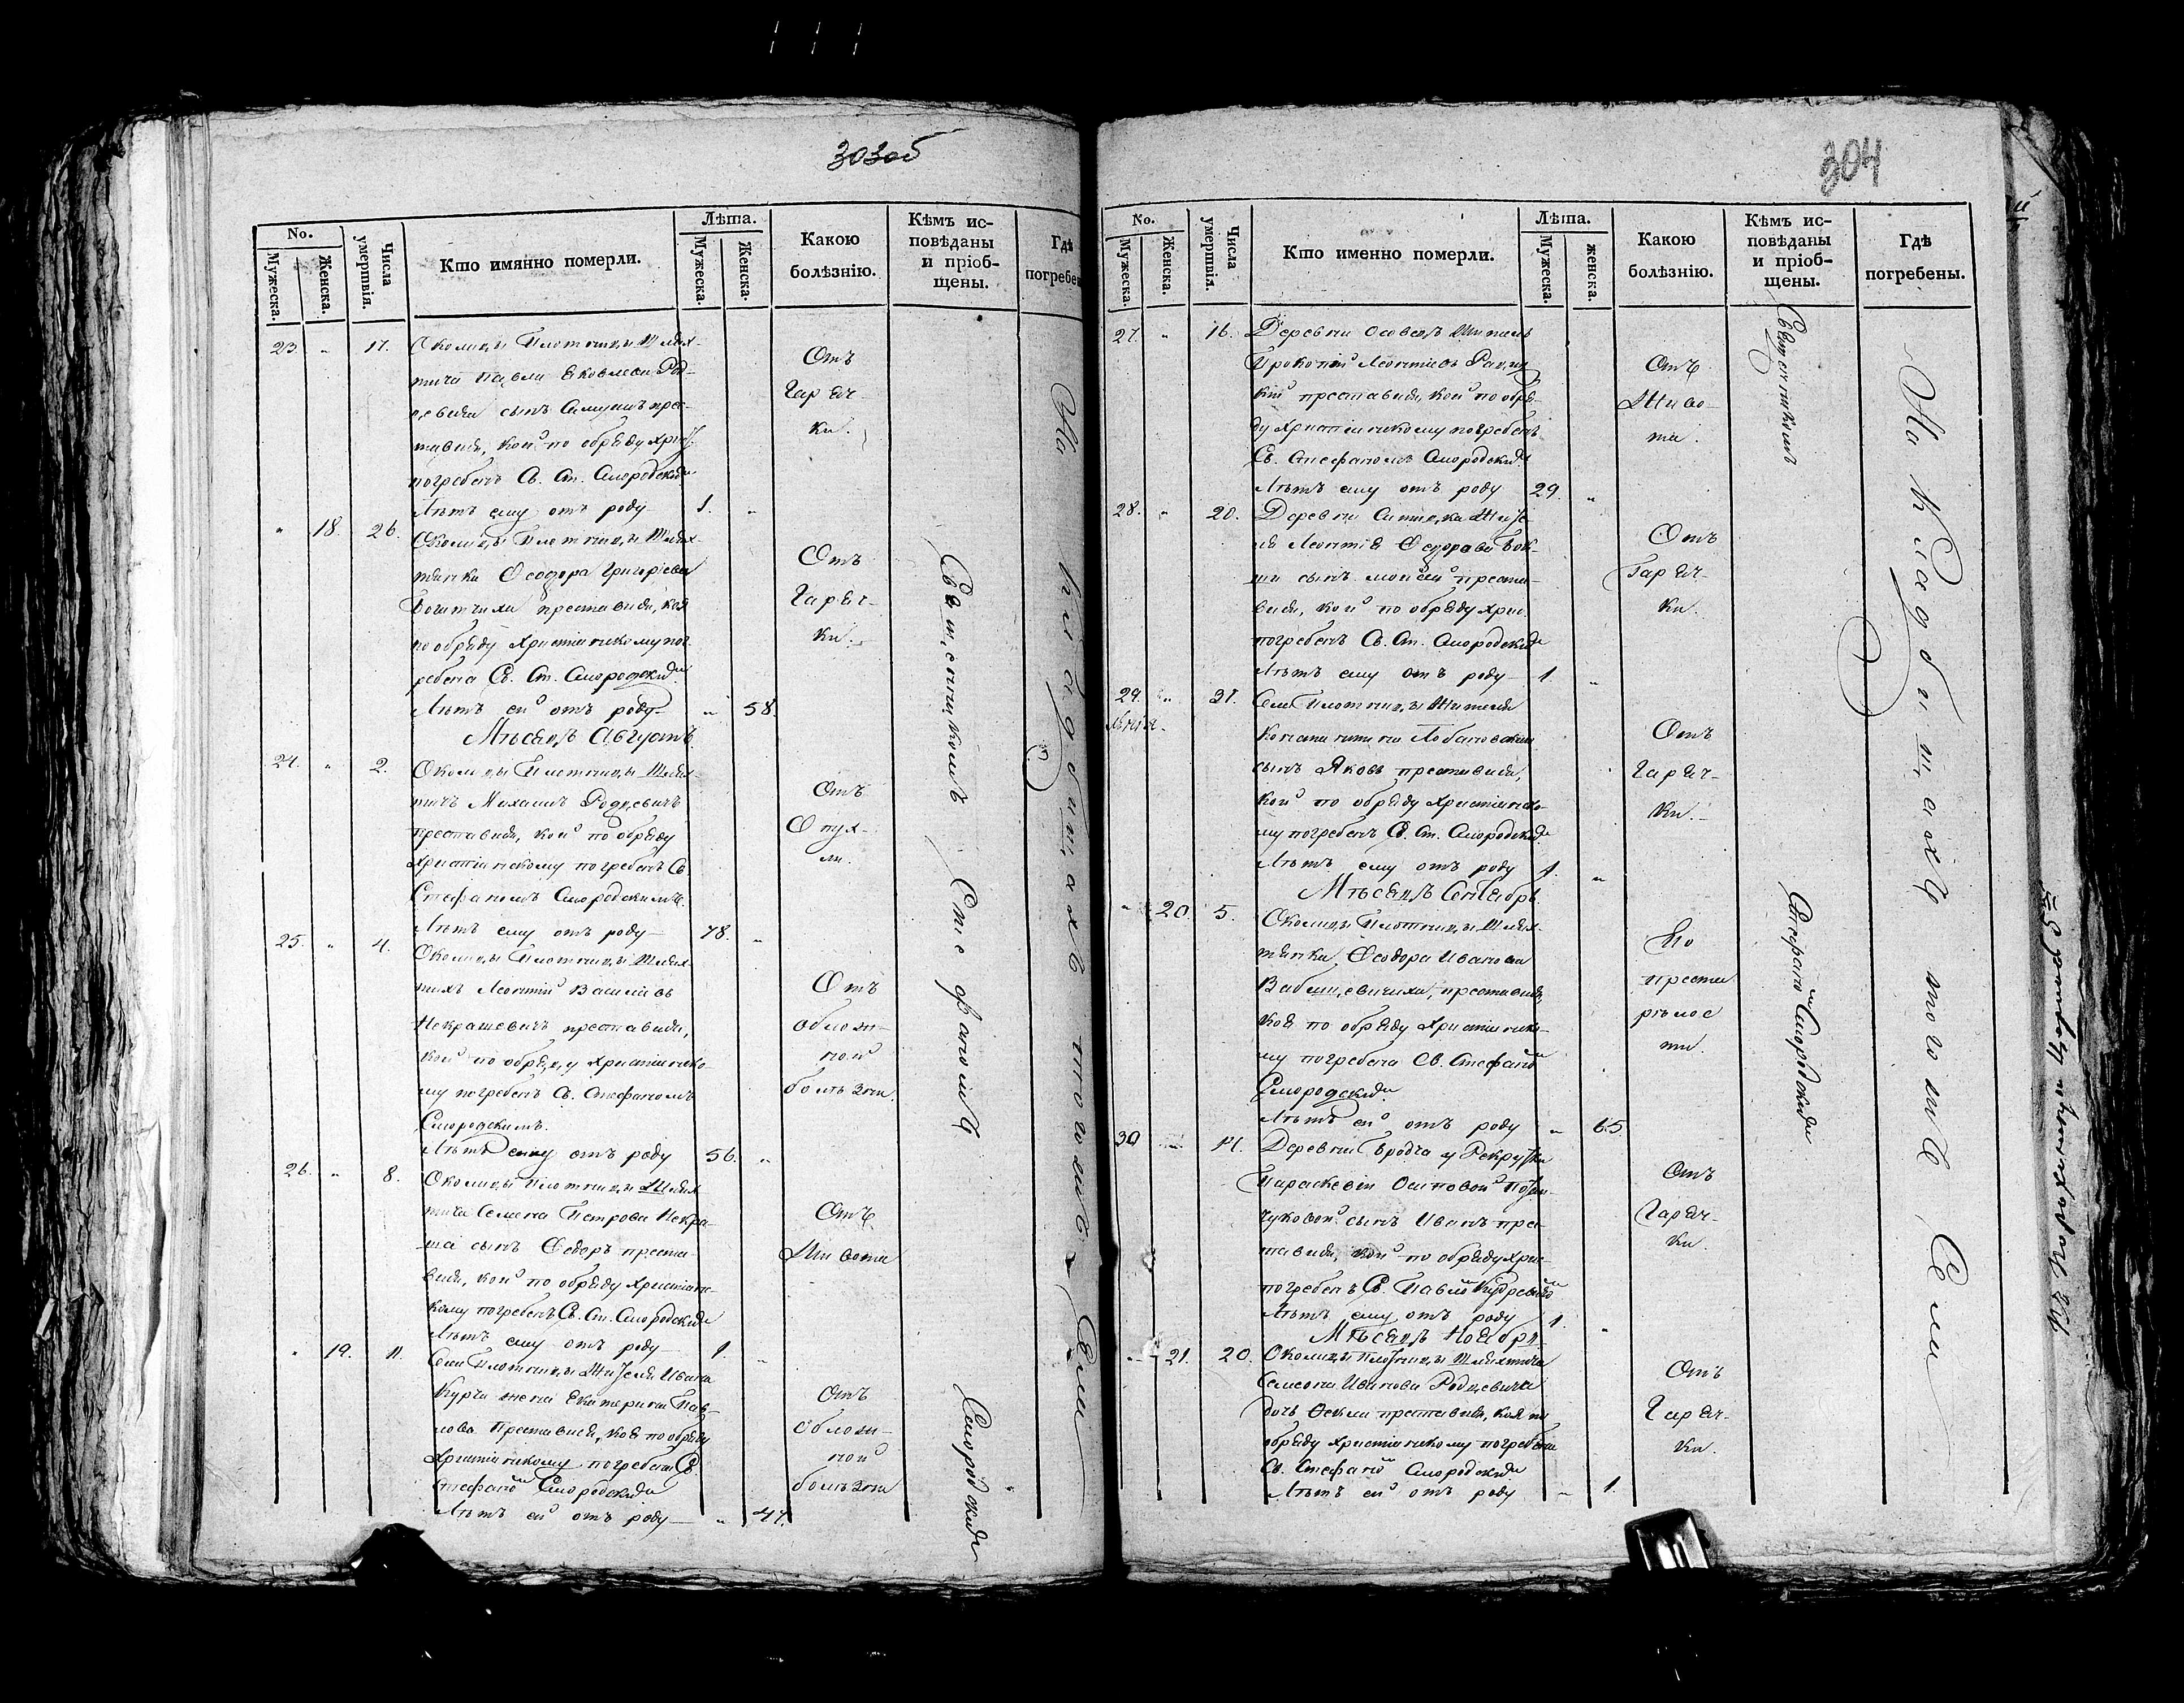 303об
No.
Мужеска.
Женска.
Числа умертвія.
Кто имянно померли.
Лѣта.
Мужеска.
Женска.
Какою болѣзнію.
Кѣмъ исповѣданы и пріобщены.
Гдѣ погребены
23. „ 17. Околицы Плотницы Шлях-
тича Павла Яковлева Род-
цевича сынъ Самуилъ прес-
тавися, кой по обряду христ.
погребенъ Св. Ст. Смородским
Лѣтъ ему отъ роду 1. „
Отъ
Гаряч
ки.
„ 18. 26. Околицы Плотницы Шлях-
тянка Ѳеодора Григорьева
преставися, коя
по обряду Христіанскому пог-
ребена Св. Ст. Смородским
Лѣтъ ей отъ роду „ 58.
Отъ
Гаряч-
ки.
Мѣсяцъ Августъ
24. „ 2. Околицы Плотницы Шлях-
тичъ Михаилъ Родцевичъ
преставися, кой по обряду
христіанскому погребенъ Св.
Стефаномъ Смородскимъ.
Лѣтъ ему отъ роду 78. „
Отъ
Опух-
ли.
25. „ 4. Околицы Плотницы Шлях-
тичъ Леонтій Василіевъ
Некрашевичъ преставися,
кой по обряду христіанско
му погребенъ Св. Стефаномъ
Смородскимъ.
Лѣтъ ему отъ роду 56. „
Отъ
облож-
ной
болѣзни.
26. „ 8. Околицы Плотницы Шлях
тича Семена Петрова Некра-
ша сынъ Ѳедоръ преста-
вися, кой по обряду христіанс-
кому погребенъ Св. Ст. Смородским
Лѣтъ ему отъ роду 1. „
Отъ
Живота
„ 19. 11. Села Плотницы Жителя Ивана
Курча жена Екатерина Пав-
лова преставися, коя по обряду
Христіанскому погребена Св.
Стефаном Смородским
Лѣтъ ей отъ роду „ 47.
Отъ
облож-
ной
болѣзни
Священникомъ Стефаномъ Смородским
На кладбищахъ тогожъ Села
304
No.
Мужеска.
Женска.
Числа умертвія.
Кто именно померли.
Лѣта.
Мужеска.
женска.
Какою болѣзнію.
Кѣмъ исповѣданы и пріобщены.
Гдѣ погребены.
27. „ 16. Деревни Житель
Прокопій Леонтіевъ
кій преставися, кой по обря-
ду Христіанскому погребенъ
Св. Стефаномъ Смородским
Лѣтъ ему отъ роду 29. „
Отъ
Живо-
та.
28. „ 20. Деревни Ситицка Жите
ля Леонтія Ѳедорова Бок-
ши сынъ Моисей преста-
вися, кой по обряду хрис.
погребенъ Св. Ст. Смородским
Лѣтъ ему отъ роду 1. „
Отъ
Гаряч-
ки.
29. „ 31. Села Плотницы Жителя
Константина Лобановскаго
сынъ Яковъ преставися,
кой по обряду христіанско-
му погребенъ Св. Ст. Смородским
Лѣтъ ему отъ роду 1. „
Отъ
Гаряч-
ки.
Мѣсяцъ Сентябрь
„ 20. 5. Околицы Плотницы Шлях-
тянка Ѳеодора Иванова
преставися,
коя по обряду Христіанско-
му погребена Св. Стефаном
Смородским.
Лѣтъ ей отъ роду „ 65.
По
преста
рѣлос
ти.
30 14. Деревни Бродча у Рекрутки
Параскевіи Осиповой
сынъ Иванъ прес-
тавися, кой по обряду хрис-
погребенъ Св. Павлом
Лѣтъ ему отъ роду 1. „
Отъ
Гаряч-
ки.
Мѣсяцъ Ноябрь
„ 21. 20. Околицы Плотницы Шляхтича
Семеона Иванова Родцевича
дочь Ѳекла преставися, коя по
обряду христіанскому погребена
Св. Стефаном Смородским
Лѣтъ ей отъ роду „ 1.
Отъ
Гаряч-
ки.
Священникомъ Стефаном Смородским
На кладбищахъ тогожъ Села